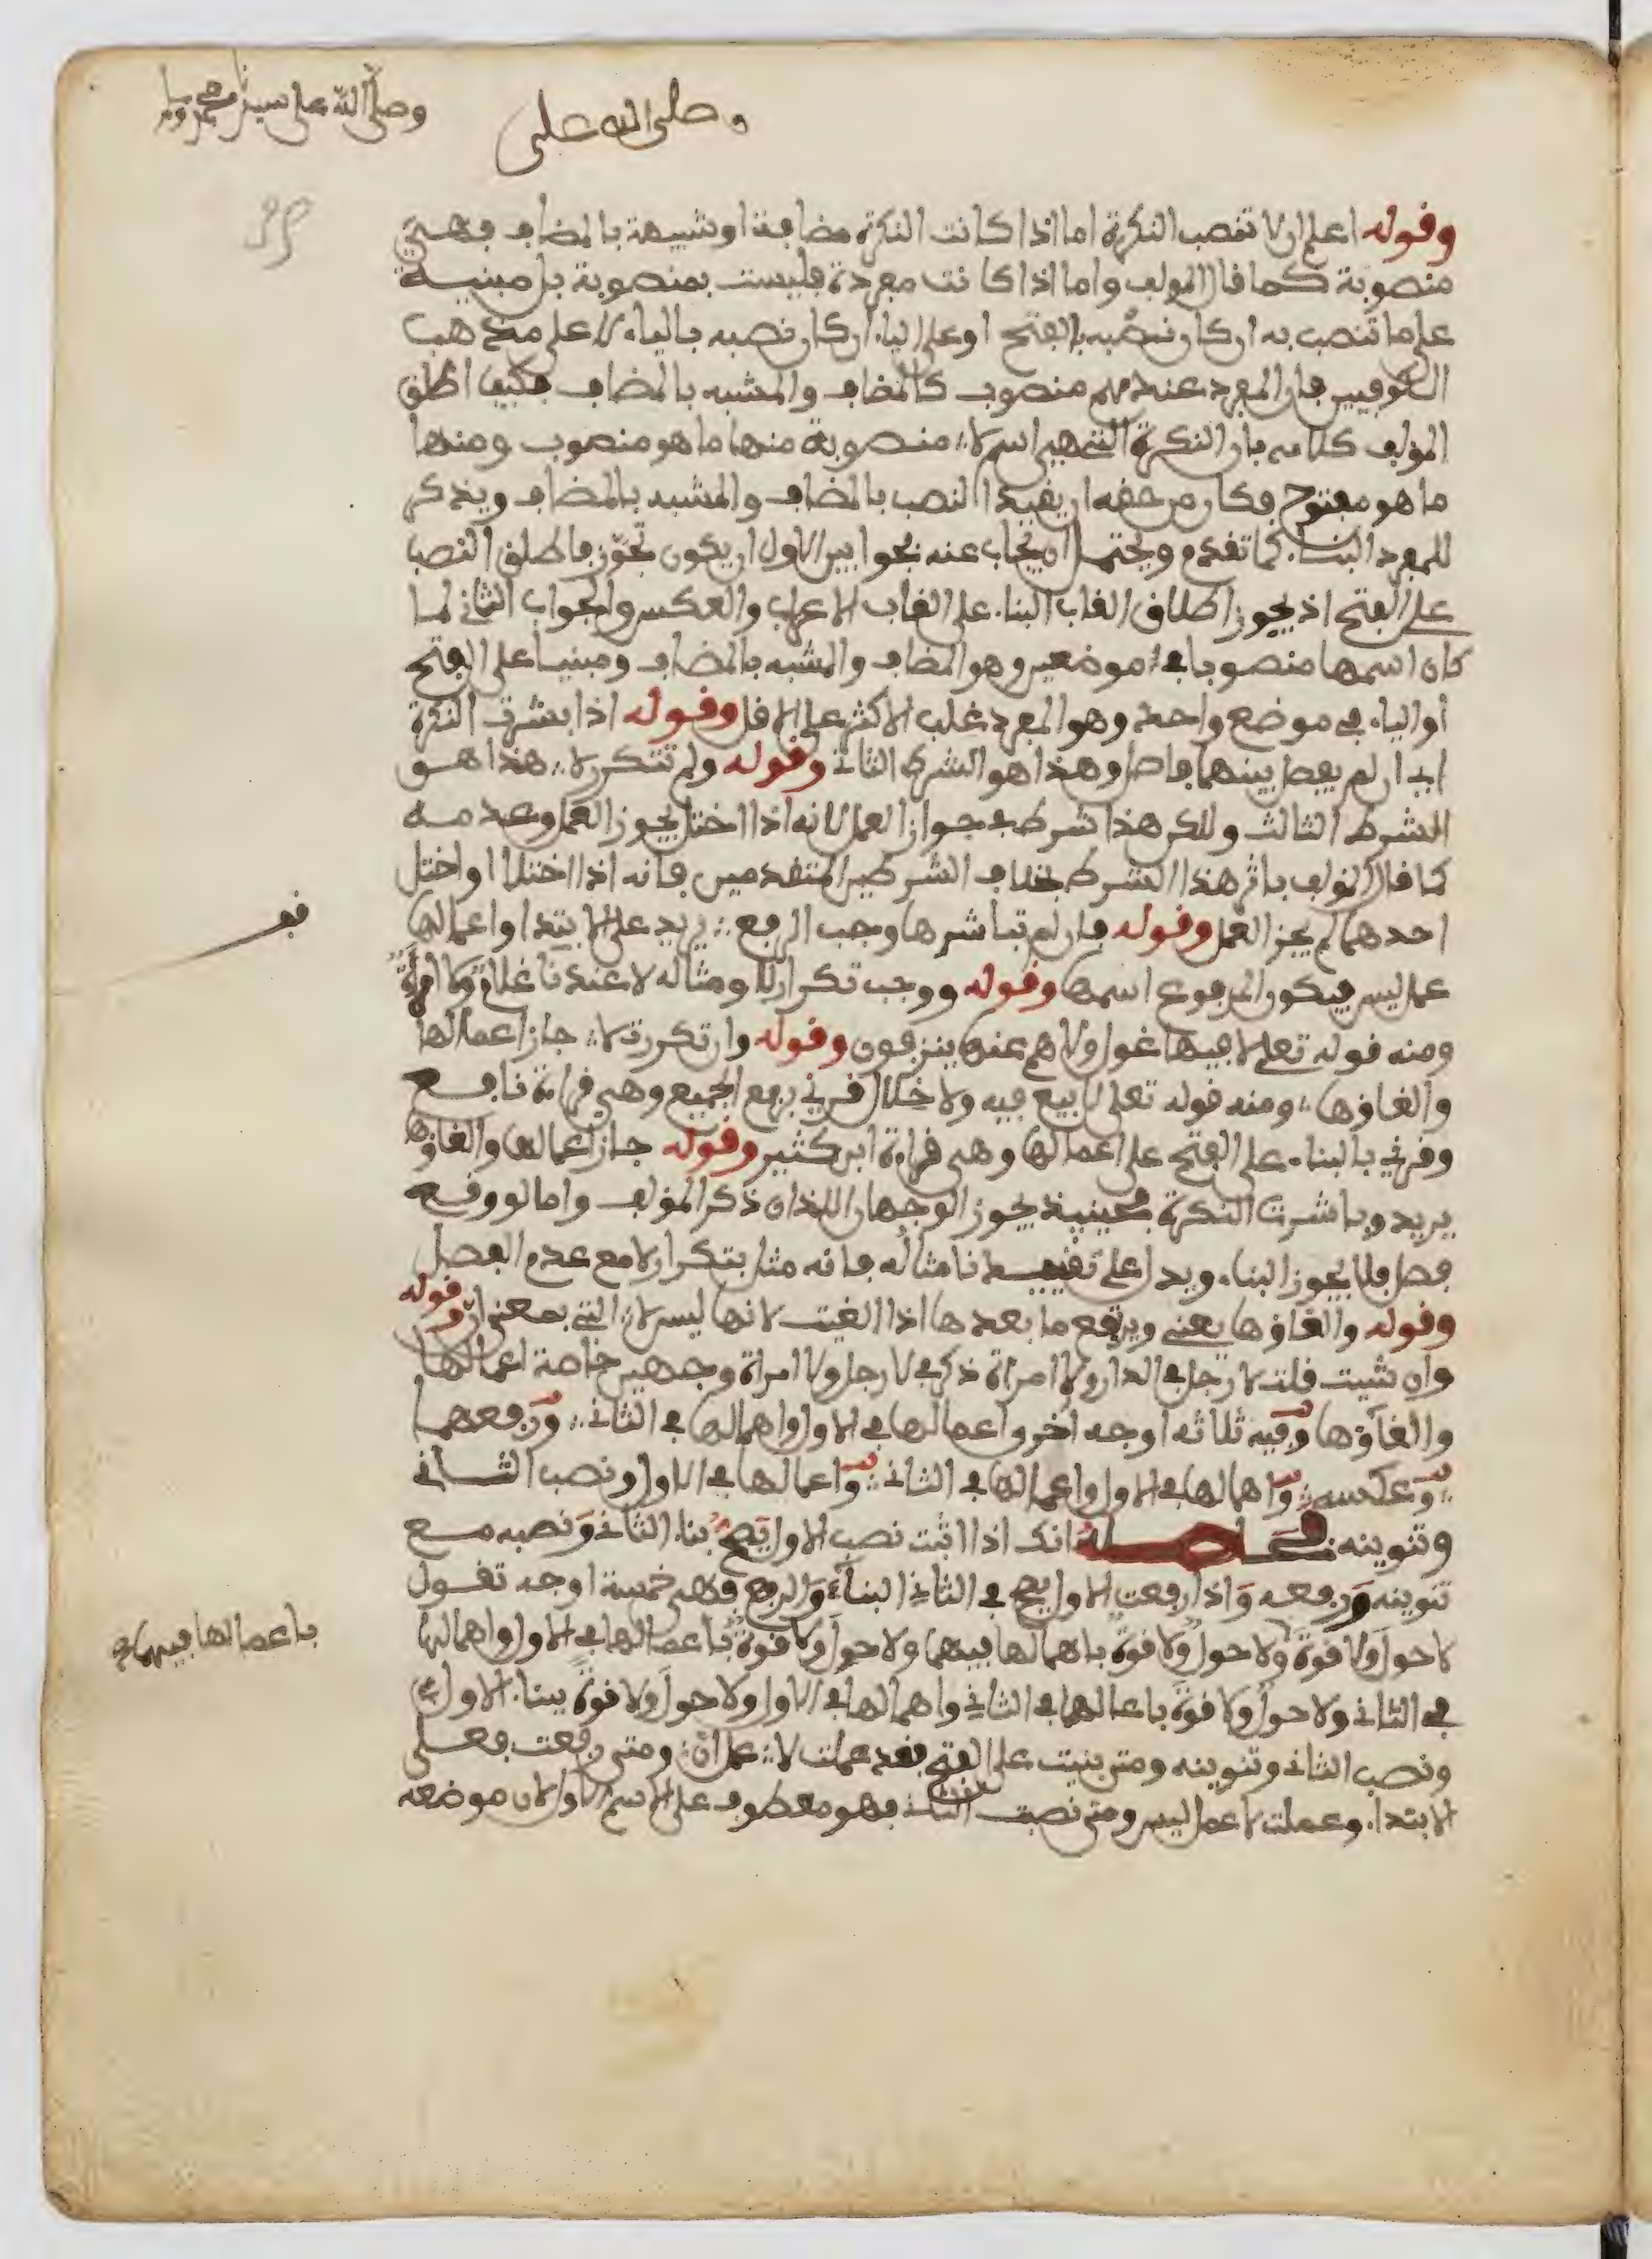 وصلى الله على سيدنا محمد وسلم
وصلى الله على
وقوله اعلم ان لا تنصب النكرة اما اذا كانت النكرة مضافة او شبيهة بالمضاف فهي
منصوبة كما قال المولف واما اذا كانت مفردة فليست بمنصوبة بل مبنية
على ما تنصب به ان كان نصبه بالفتح او على الياء ان كان نصبه بالياء لا على مذهب
الكوفيين فان المفرد عندهم منصوب كالمضاف والمشبه بالمضاف فكيف اطلق
المولف كلامه بان النكرة التي هي اسم لا منصوبة منها ما هو منصوب ومنها
ما هو مفتوح فكان من حقه ان يقيد النصب بالمضاف والمشبه بالمضاف ويذكر
للمفرد البناء كما تقدم ويحتمل ان يجاب عنه بجوابين الاول ان يكون تجوز فاطلق النصب
على الفتح اذ يجوز اطلاق القاب البناء على القاب الاعراب والعكس والجواب الثاني لما
كان اسمها منصوبا في موضعين وهو المضاف والمشبه بالمضاف ومبنيا على الفتح
او الياء في موضع واحد وهو المفرد غلب الاكثر على الاقل وقوله اذا بشرت النكرة
اي ان لم يفصل بينهما فاصل وهذا هو الشرط الثاني وقوله ولم تتكرر لا هذا هو
الشرط الثالث ولكن هذا شرط في جواز العمل لانه اذا اختل يجوز العمل وعدمه
كما قال المولف باثر هذا الشرط بخلاف الشرطين المتقدمين فانه اذا اختلا او اختل
احدهما لم يجز العمل وقوله فان لم تباشرها وجب الرفع يريد على الابتدا او اعمالها
عمل ليس فيكون المرفوع اسمها وقوله ووجب تكرار لا ومثاله لا عندنا غلام ولا امرأة
ومنه قوله تعلى لا فيها غول ولا هم عنها ينزفون وقوله وان تكررت لا جاز اعمالها
والغاؤها ومنه قوله تعلى لا بيع فيه ولا خلال قرئي برفع الجميع وهي قراءة نافع
وقرئي بالبناء على الفتح على اعمالها وهي قراءة ابن كثير وقوله جاز اعمالها والغاؤها
يريد وباشرت النكرة فحينيذ يجوز الوجهان اللذان ذكر المولف واما لو وقع
فصل فلا يجوز البناء ويدل على تقييدنا مثاله فانه مثل بتكرار لا مع عدم الفصل
وقوله والغاؤها يعني ويرتفع ما بعدها اذا الغيت لانها ليس لا التي بمعنى ان وقوله
وان شيت قلت لا رجل في الدار ولا امراة ذكر في لا رجل ولا امراة وجهين خاصة اعمالها
والغاؤها وفيه ثلاثه اوجه اخر واعمالها في الاول واهمالها في الثاني ورفعهما
وعكسه واهمالها في الاول واعمالها في الثاني واعمالها في الاول ونصب الثاني
وتنوينه فحاصله انك اذا اثبت نصب الاول يصح بناء الثاني ونصبه مع
تنوينه ورفعه واذا رفعت الاول يصح في الثاني البناء والرفع فهي خمسة اوجه تقول
لا حول ولا قوة ولا حول ولا قوة باهمالها فيهما ولا حول ولا قوة باعمالها في الاول واهمالها
باعمالها فيهما صح
في الثاني ولا حول ولا قوة باعمالها في الثاني واهمالها في الاول ولا حول ولا قوة ببناء الاول
ونصب الثاني وتنوينه ومتى بنيت على الفتح فقد عملت لا عمل ان ومتى رفعت فعلى
الابتداء وعملت لا عمل ليس ومتى نصبت الثاني فهو معطوف على الاسم الاول لان موضعه